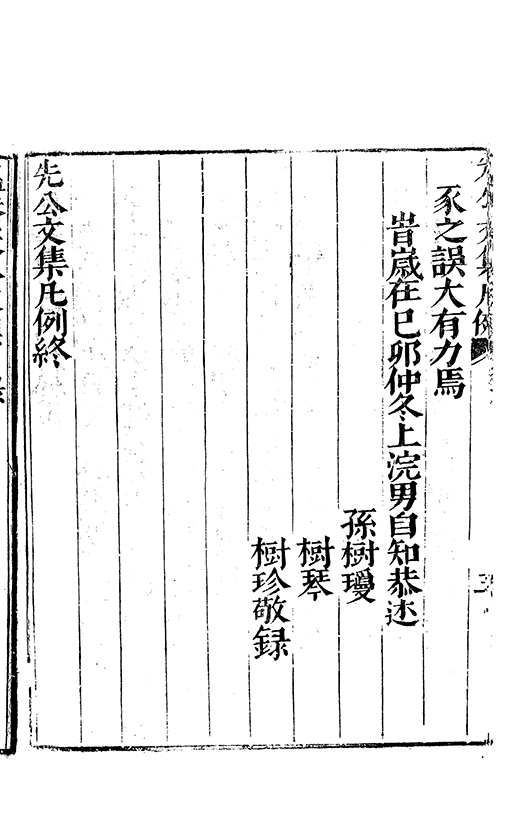 豕之誤大有力焉
旹歲在己卯仲冬上浣男自知恭述
孫樹瓊
樹琴
樹珍敬録
先公文集凡例終